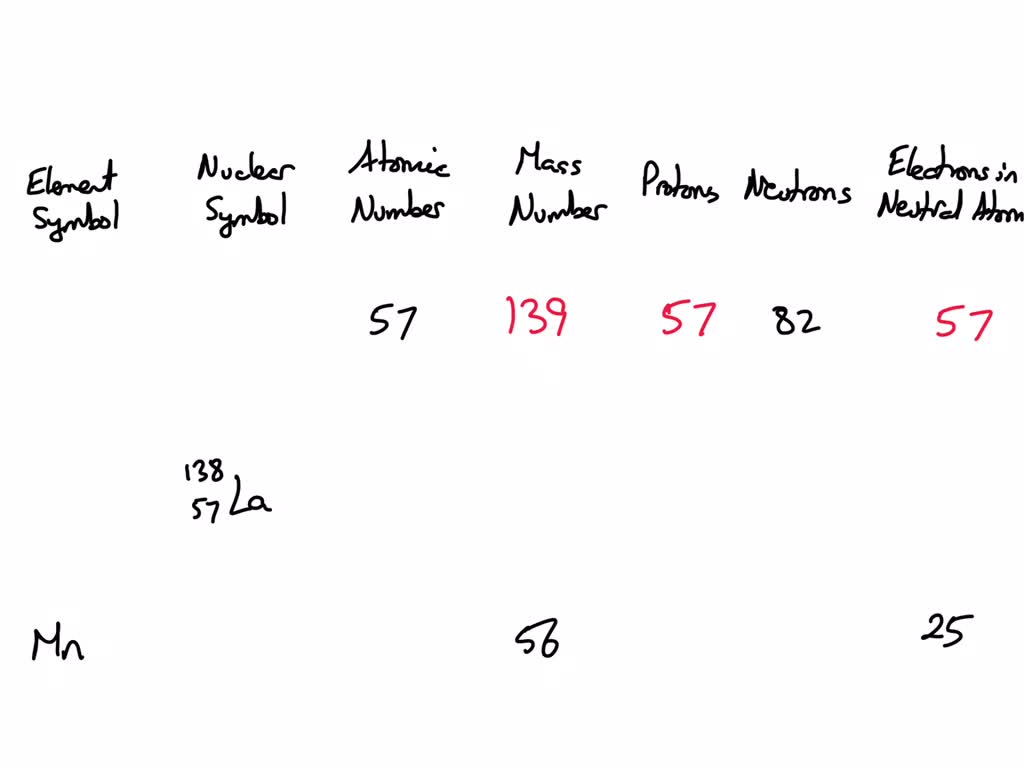 Element Symbol Nuclear Symbol Atomic Number Mass Number Protons Neutrons Electrons in Neutral Atom
57 139 57 82 57
138 57 La
Mn 56 25